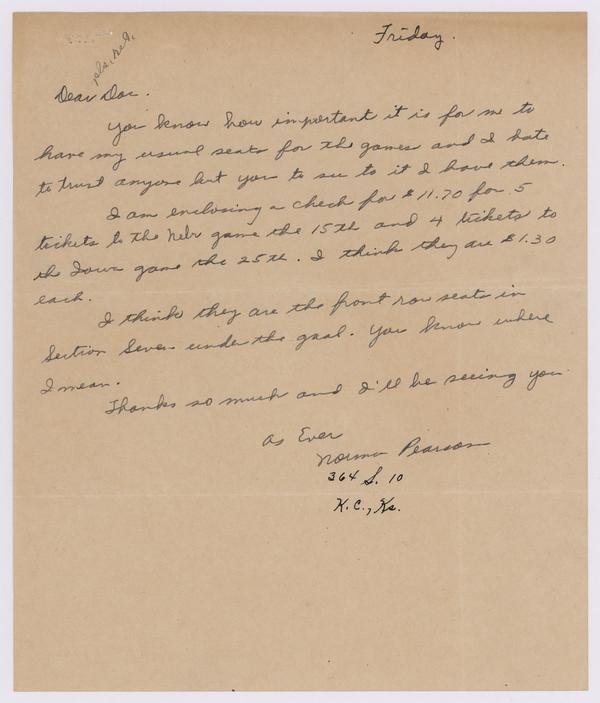 Friday.
pls. ret.
Dear Doc.
You know how important it is for me to
have my usual seats for the games and I hate
to trust anyone but you to see to it I have them.
I am enclosing a check for $11.70 for 5
tickets to the Nebr game the 15th and 4 tickets to
the Iowa game the 25th. I think they are $1.30
each.
I think they are the front row seats in
Section Seven under the goal. You know where
I mean.
Thanks so much and I'll be seeing you
As Ever
Norma Pearson
364 S. 10
K.C., Ks.